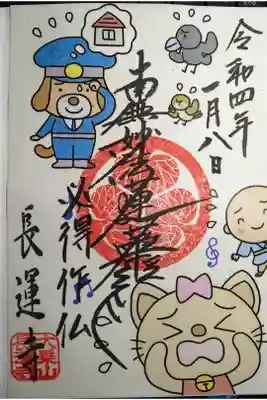 令和四年
一月八日
南無妙法蓮華経
必得作仏
長運寺